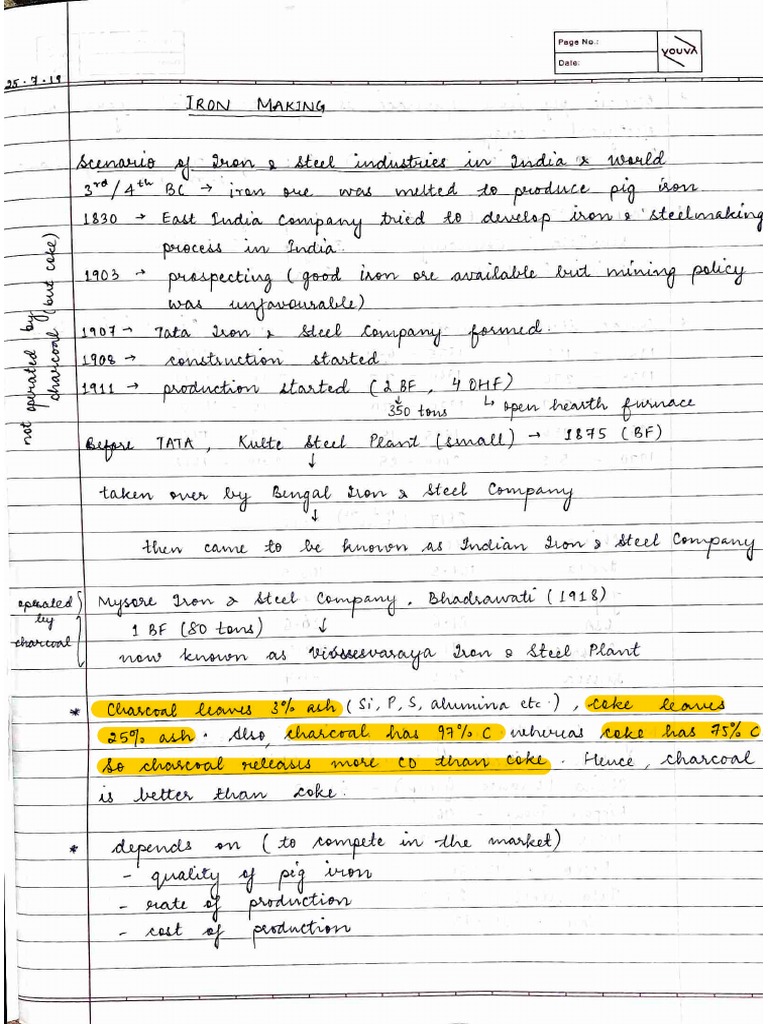 Page No.:
Date:
YOUVA
25.7.19
IRON MAKING
Scenario of Iron & Steel industries in India & World
3rd/4th BC → iron ore was melted to produce pig iron.
1830 → East India Company tried to develop iron & steelmaking
process in India.
1903 → prospecting (good iron ore available but mining policy
was unfavourable)
1907 → Tata Iron & Steel Company formed.
1908 → construction started
1911 → production started (2 BF, 4 OHF)
↓ 350 tons ↳ open hearth furnace
not operated by
charcoal (but coke)
Before TATA, Kulte Steel Plant (small) → 1875 (BF)
↓
taken over by Bengal Iron & Steel Company
↓
then came to be known as Indian Iron & Steel Company
operated
by
charcoal
Mysore Iron & Steel Company, Bhadrawati (1918)
1 BF (80 tons) ↓
now known as Visvesvaraya Iron & Steel Plant
* Charcoal leaves 3% ash (Si, P, S, alumina etc.), coke leaves
25% ash. Also, charcoal has 97% C whereas coke has 75% C
So charcoal releases more CO than coke. Hence, charcoal
is better than coke.
* depends on (to compete in the market)
- quality of pig iron
- rate of production
- cost of production